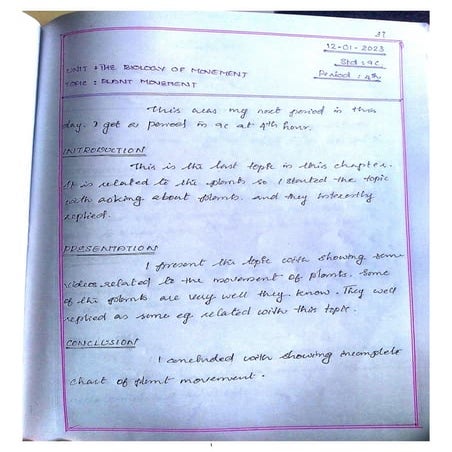 37
12-01-2023
Std : 9C
UNIT : THE BIOLOGY OF MOVEMENT
Period : 4th
TOPIC : PLANT MOVEMENT
This was my next period in this
day. I got a period in 9c at 4th hour.
INTRODUCTION
This is the last topic in this chapter.
It is related to the plants so I started the topic
with asking about plants. and they
replied.
PRESENTATION
I present the topic with showing some
videos related to the movement of plants. Some
of the plants are very well they know. They well
replied as some eg related with this topic.
CONCLUSION
I concluded with showing incomplete
chart of plant movement.